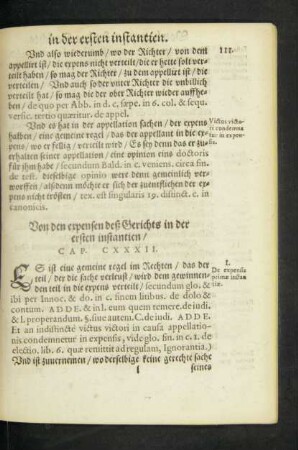 in der ersten instantien.
Vnd also wiederumb / wo der Richter / von dem
appellirt ist / die expens nicht verteilt / die er hette solt ver-
teilt haben / so mag der Richter / zu dem appellirt ist / die
verteilen / Vnd auch so der vnter Richter die vnbillich
verteilt hat / so mag die der ober Richter wieder auffhe-
ben / de quo per Abb. in d. c. sæpe. in 6. col. & sequ.
versic. tertio quæritur. de appel.
III.
Vnd es hat in der appellation sachen / der expens
halben / eine gemeine regel / das der appellant in die ex-
pens / wo er fellig / verteilt wird / Es sey denn das er zu-
fellen seiner appellation / eine opinion eins doctoris
für ihn habe / secundum Bald. in c. venient. circa fin.
de test. wo dieselbige opinio were denn gemeinlich ver-
worffen / alsdenn möcht er sich der zuentfliehen der ex-
pens nicht trösten / tex. est singularis 19. distinct. c. in
canonicis.
Victus victo-
ri condemna
tur in expen-
sis.
Von den expensen deß Gerichts in der
ersten instantien /
CAP. CXXXII.
ES ist eine gemeine regel im Rechten / das der
teil / der die sache verleust / wird dem gewinnen-
den teil in die expens verteilt / secundum glo. &
ibi per Innoc. & do. in c. finem litibus. de dolo &
contum. ADDE. & in l. eum quem temere. de iudi.
& l. properandum. §. sine autem. C. de iudi. ADDE.
Et an indistinctè victus victori in causa appellatio-
nis condemnetur in expensis, vide glo. fin. in c. 1. de
electio. lib. 6. quæ remittit ad regulam, Ignorantia.)
Vnd ist zuuernemen / wo derselbige keine gerechte sache
I.
De expensis
primæ instan
tiæ.
l
seines